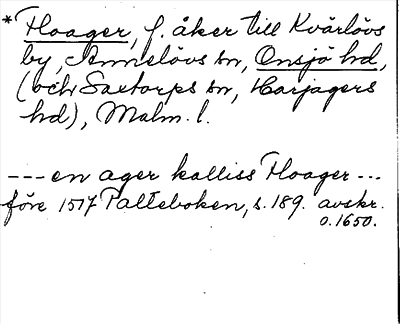 * Hoager, f. åker till Kvärlövs
by, Annelövs sn, Onsjö hd,
(och Saxtorps sn, Harjagers
hd), Malm. l.
--- en ager kalliss Hoager ---
före 1517 Palteboken, s. 189. avskr.
o. 1650.